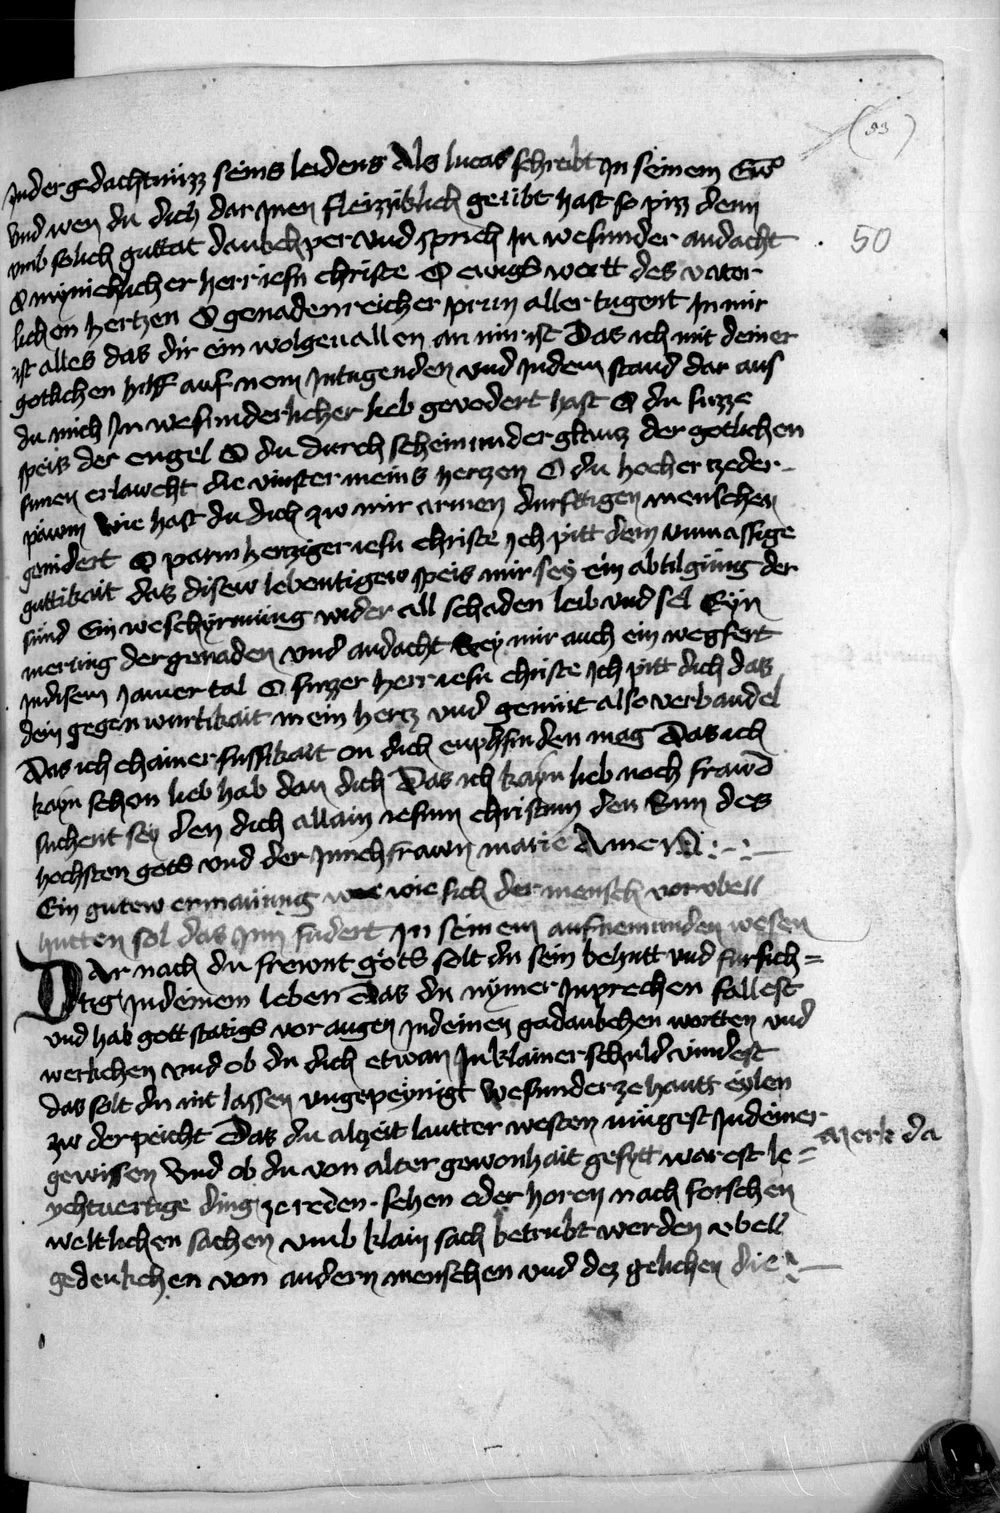 (53)
50
Jn der gedachtnüzz seins leidens Als lucas schreibt Jn seinem Ewo
Vnd wen du dich dar Jnen fleizziklich geübt hast so pizz denn
vmb solich guttat dankchper vnd sprich Jn wesunder andacht
O mynichlicher herr iesu christe O ewigs wortt des vater
lichen hertzen O genadenreicher prun aller tugent Jn mir
ist alles das dir ein wolgeuallen an mir ist Das ich mit deiner
gotlichen hilff auf nem Jn tugenden vnd Jn dem stand dar auf
du mich Jn wesunderlicher lieb geuodert hast O du suzze
speis der engel O du durch scheinunder glantz der gotlichen
sunen erlawcht die vinster meins hertzen O du hocher tzeder
pawm wie hast du dich zw mir armen durfftigen menschen
genidert O parmhertziger iesu christe Jch pitt dein vnmassige
guttikait das disew lebentigew speis mir sey ein abtilgüng der
sünd Ein weschyrmüng wider all schaden leib vnd sel Eyn
merung der genaden vnd andacht Sey mir auch ein wegfert
Jn disem Jamer tal O suzzer herr iesu christe Jch pitt dich das
dein gegenwurtikait mein hertz vnd gemüt also verbandel
Das ich chainer sussikait on dich enphfinden mag Das ich
kayn schon lieb hab dan dich Das ich kayn lieb noch frawd
suchent sey den dich allain iesum christum den Sun des
hochsten gots vnd der Junchfrawn marie Amen
Ein gutew ermanung wie sich der mensch vor vbell
hutten sol das Jnn fudert Jn seinem aufnemunden wesen
DAr nach du frewnt gots solt du sein behutt vnd fursich=
tig Jn deinem leben Das du nymer Jn prechen fallest
vnd hab gott statigs vor augen Jn deinen gadankchen wortten vnd
werkchen vnd ob du dich etwan Jn klainer schuld vindest
das solt du nit lassen vngepeynigt wesunder ze hantt eylen
zw der peicht Das du alczeit lautter westen mügest Jn deiner
gewissen Vnd ob du von alter gewonhait gesytt warest le=
ychtuertige ding ze reden sehen oder horen nach forschen
weltlichen sachen vmb klain sach betrubt werden vbell
gedenkchen von andern menschen vnd dez gelichen die
Merk da